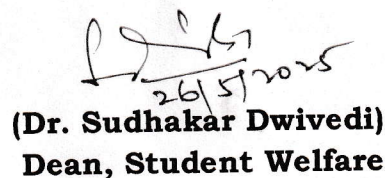 26/5/2025
(Dr. Sudhakar Dwivedi)
Dean, Student Welfare